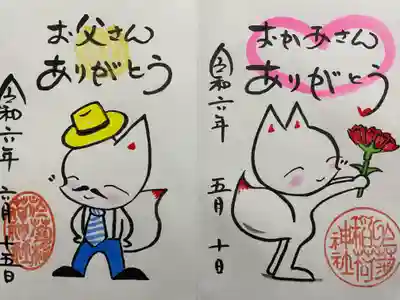 お父さん
ありがとう
令和六年
六月十五日
おかあさん
ありがとう
令和六年
五月十日
稲荷
神社